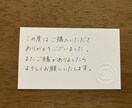 この度はご購入いただき
ありがとうございました。
またご縁がありましたら
よろしくお願いいたします。